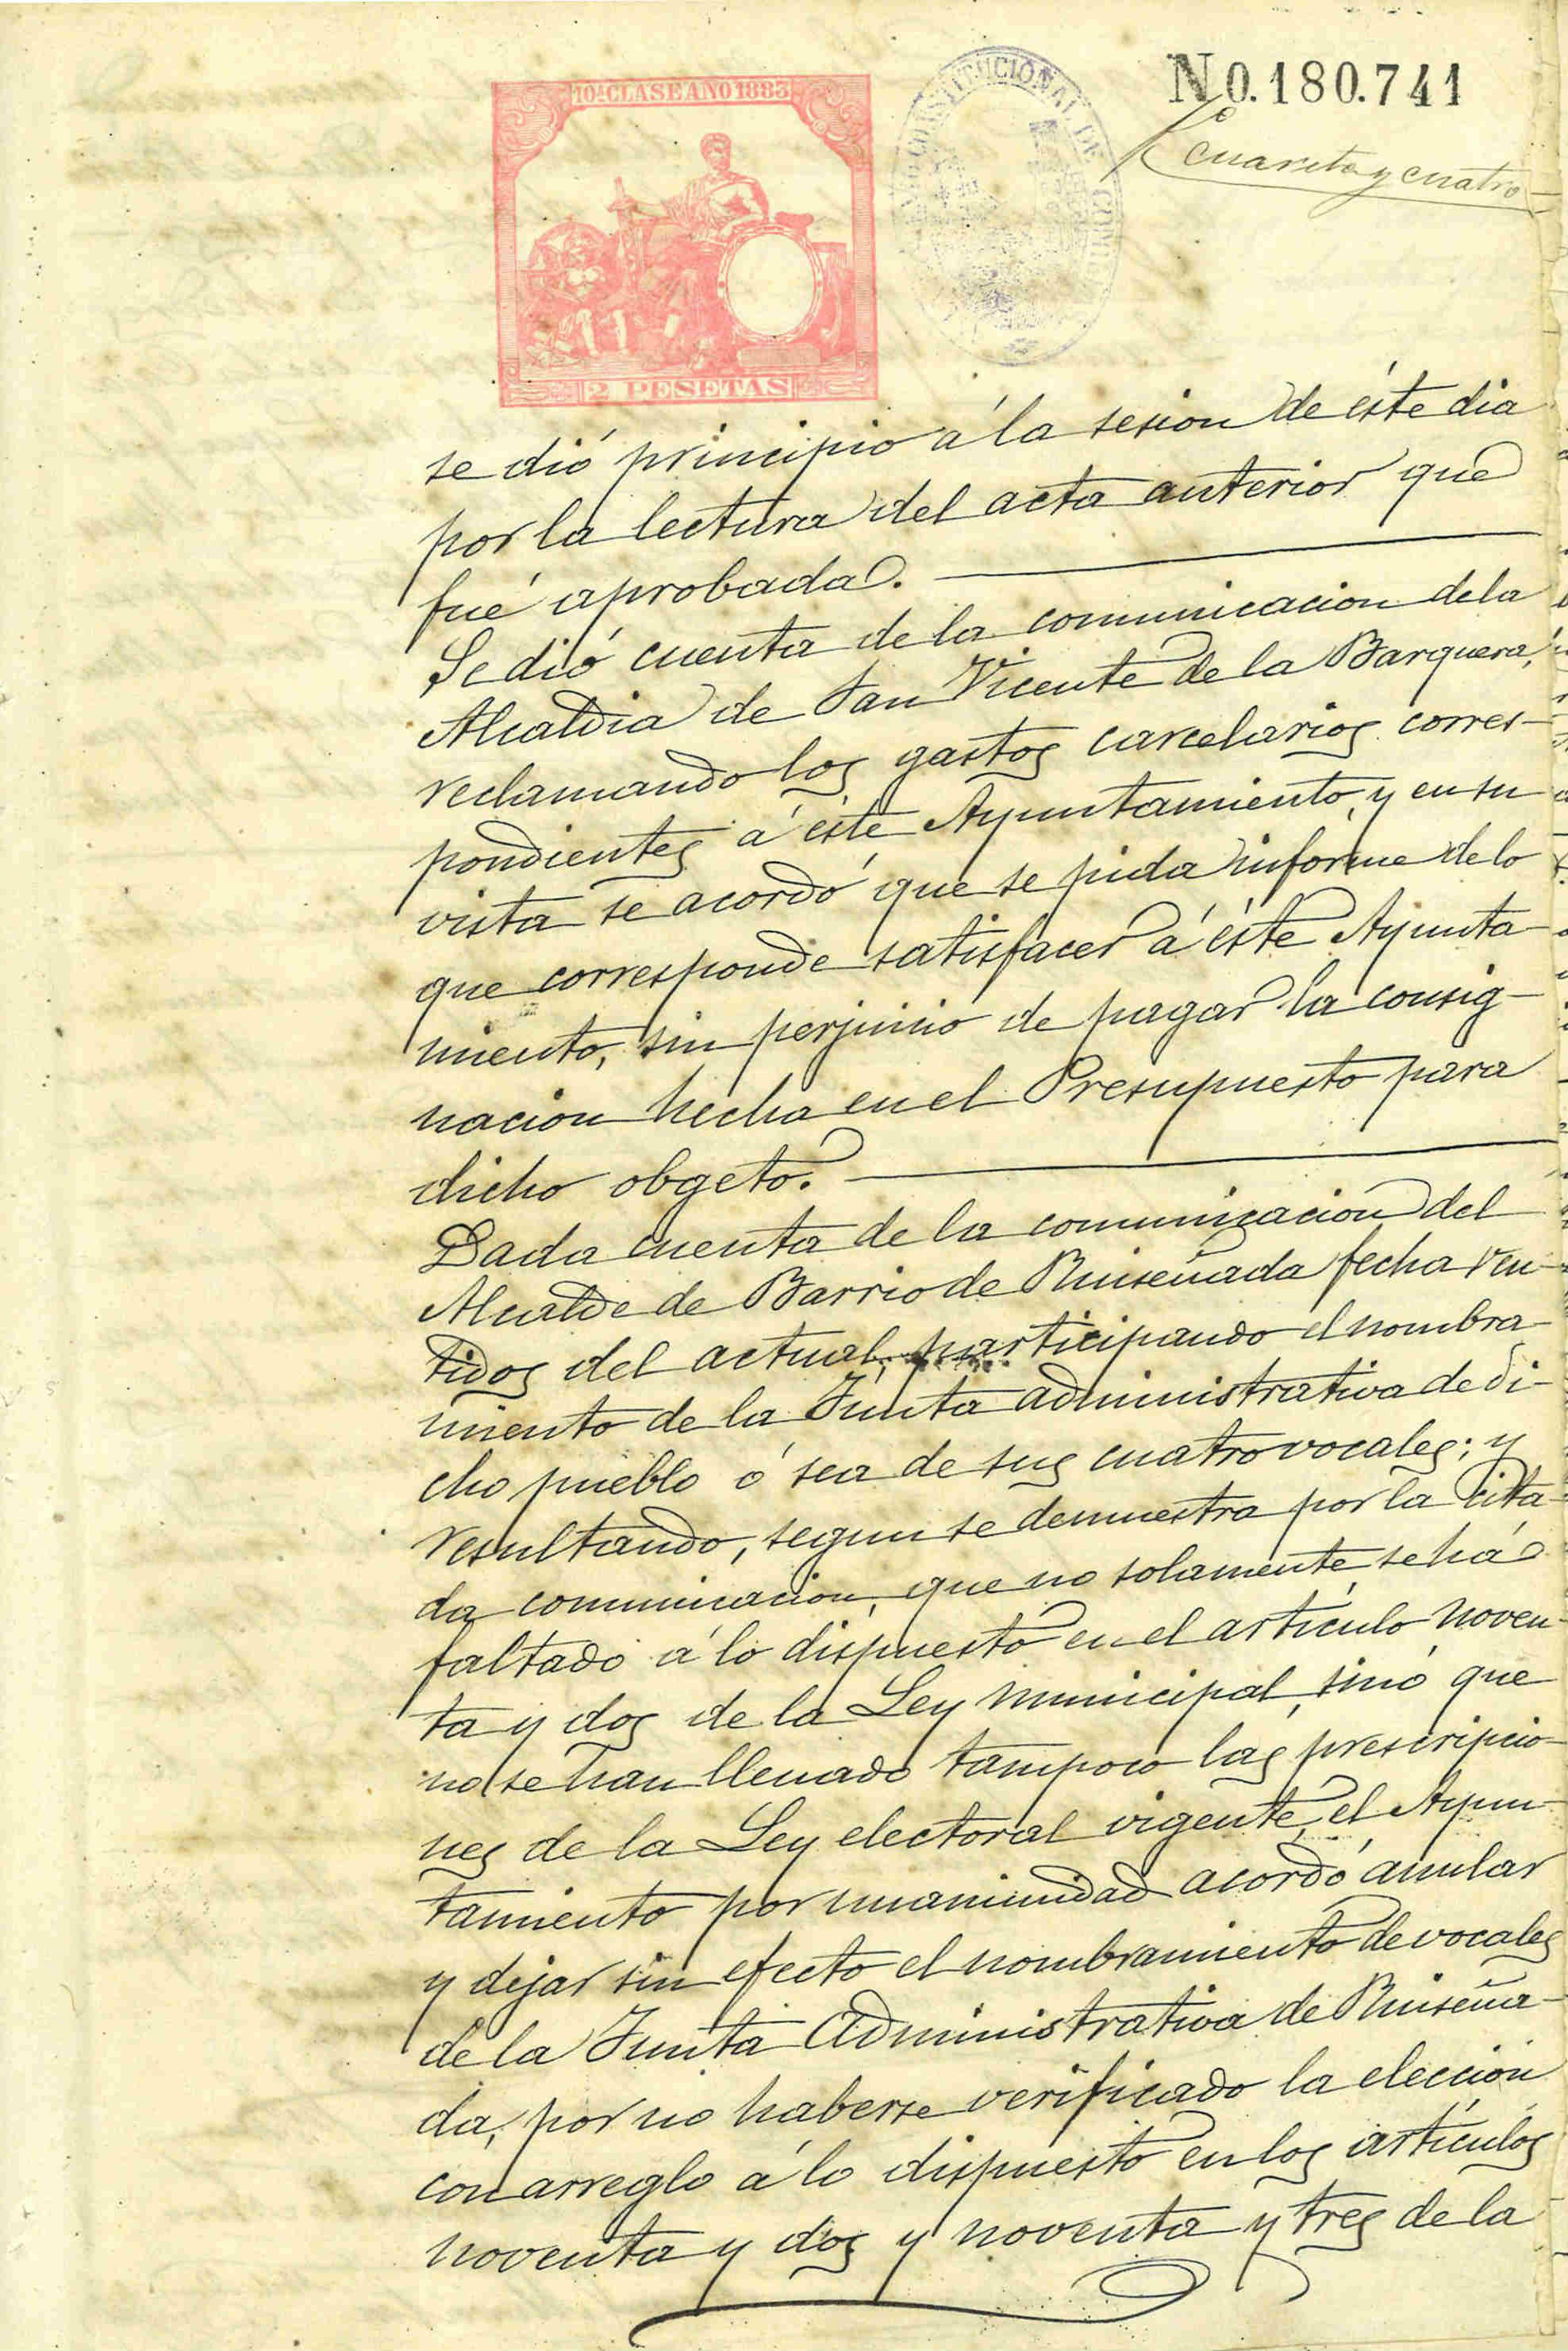 10ª CLASE AÑO 1883
2 PESETAS
CONSTITUCIONAL DE
N 0.180.741
cuarenta y cuatro
se dió principio á la sesion de éste dia
por la lectura del acta anterior que
fué aprobada.
Se dió cuenta de la comunicacion de la
Alcaldia de San Vicente de la Barquera,
reclamando los gastos carcelarios corres-
pondientes á éste Ayuntamiento, y en su
vista se acordó que se pida informe de lo
que corresponde satisfacer á éste Ayunta-
miento, sin perjuicio de pagar la consig-
nacion hecha en el Presupuesto para
dicho obgeto.
Dada cuenta de la comunicacion del
Alcalde de Barrio de Ruiseñada fecha vein-
tidos del actual, participando el nombra-
miento de la Junta administrativa de di-
cho pueblo ó sea de sus cuatro vocales; y
resultando, segun se demuestra por la cita-
da comunicacion, que no solamente se há
faltado á lo dispuesto en el artículo noven-
ta y dos de la Ley municipal, sinó que
no se han llenado tampoco las prescripcio-
nes de la Ley electoral vigente, el Ayun-
tamiento por unanimidad acordó anular
y dejar sin efecto el nombramiento de vocales
de la Junta Administrativa de Ruiseña-
da, por no haberse verificado la eleccion
con arreglo á lo dispuesto en los artículos
noventa y dos y noventa y tres de la